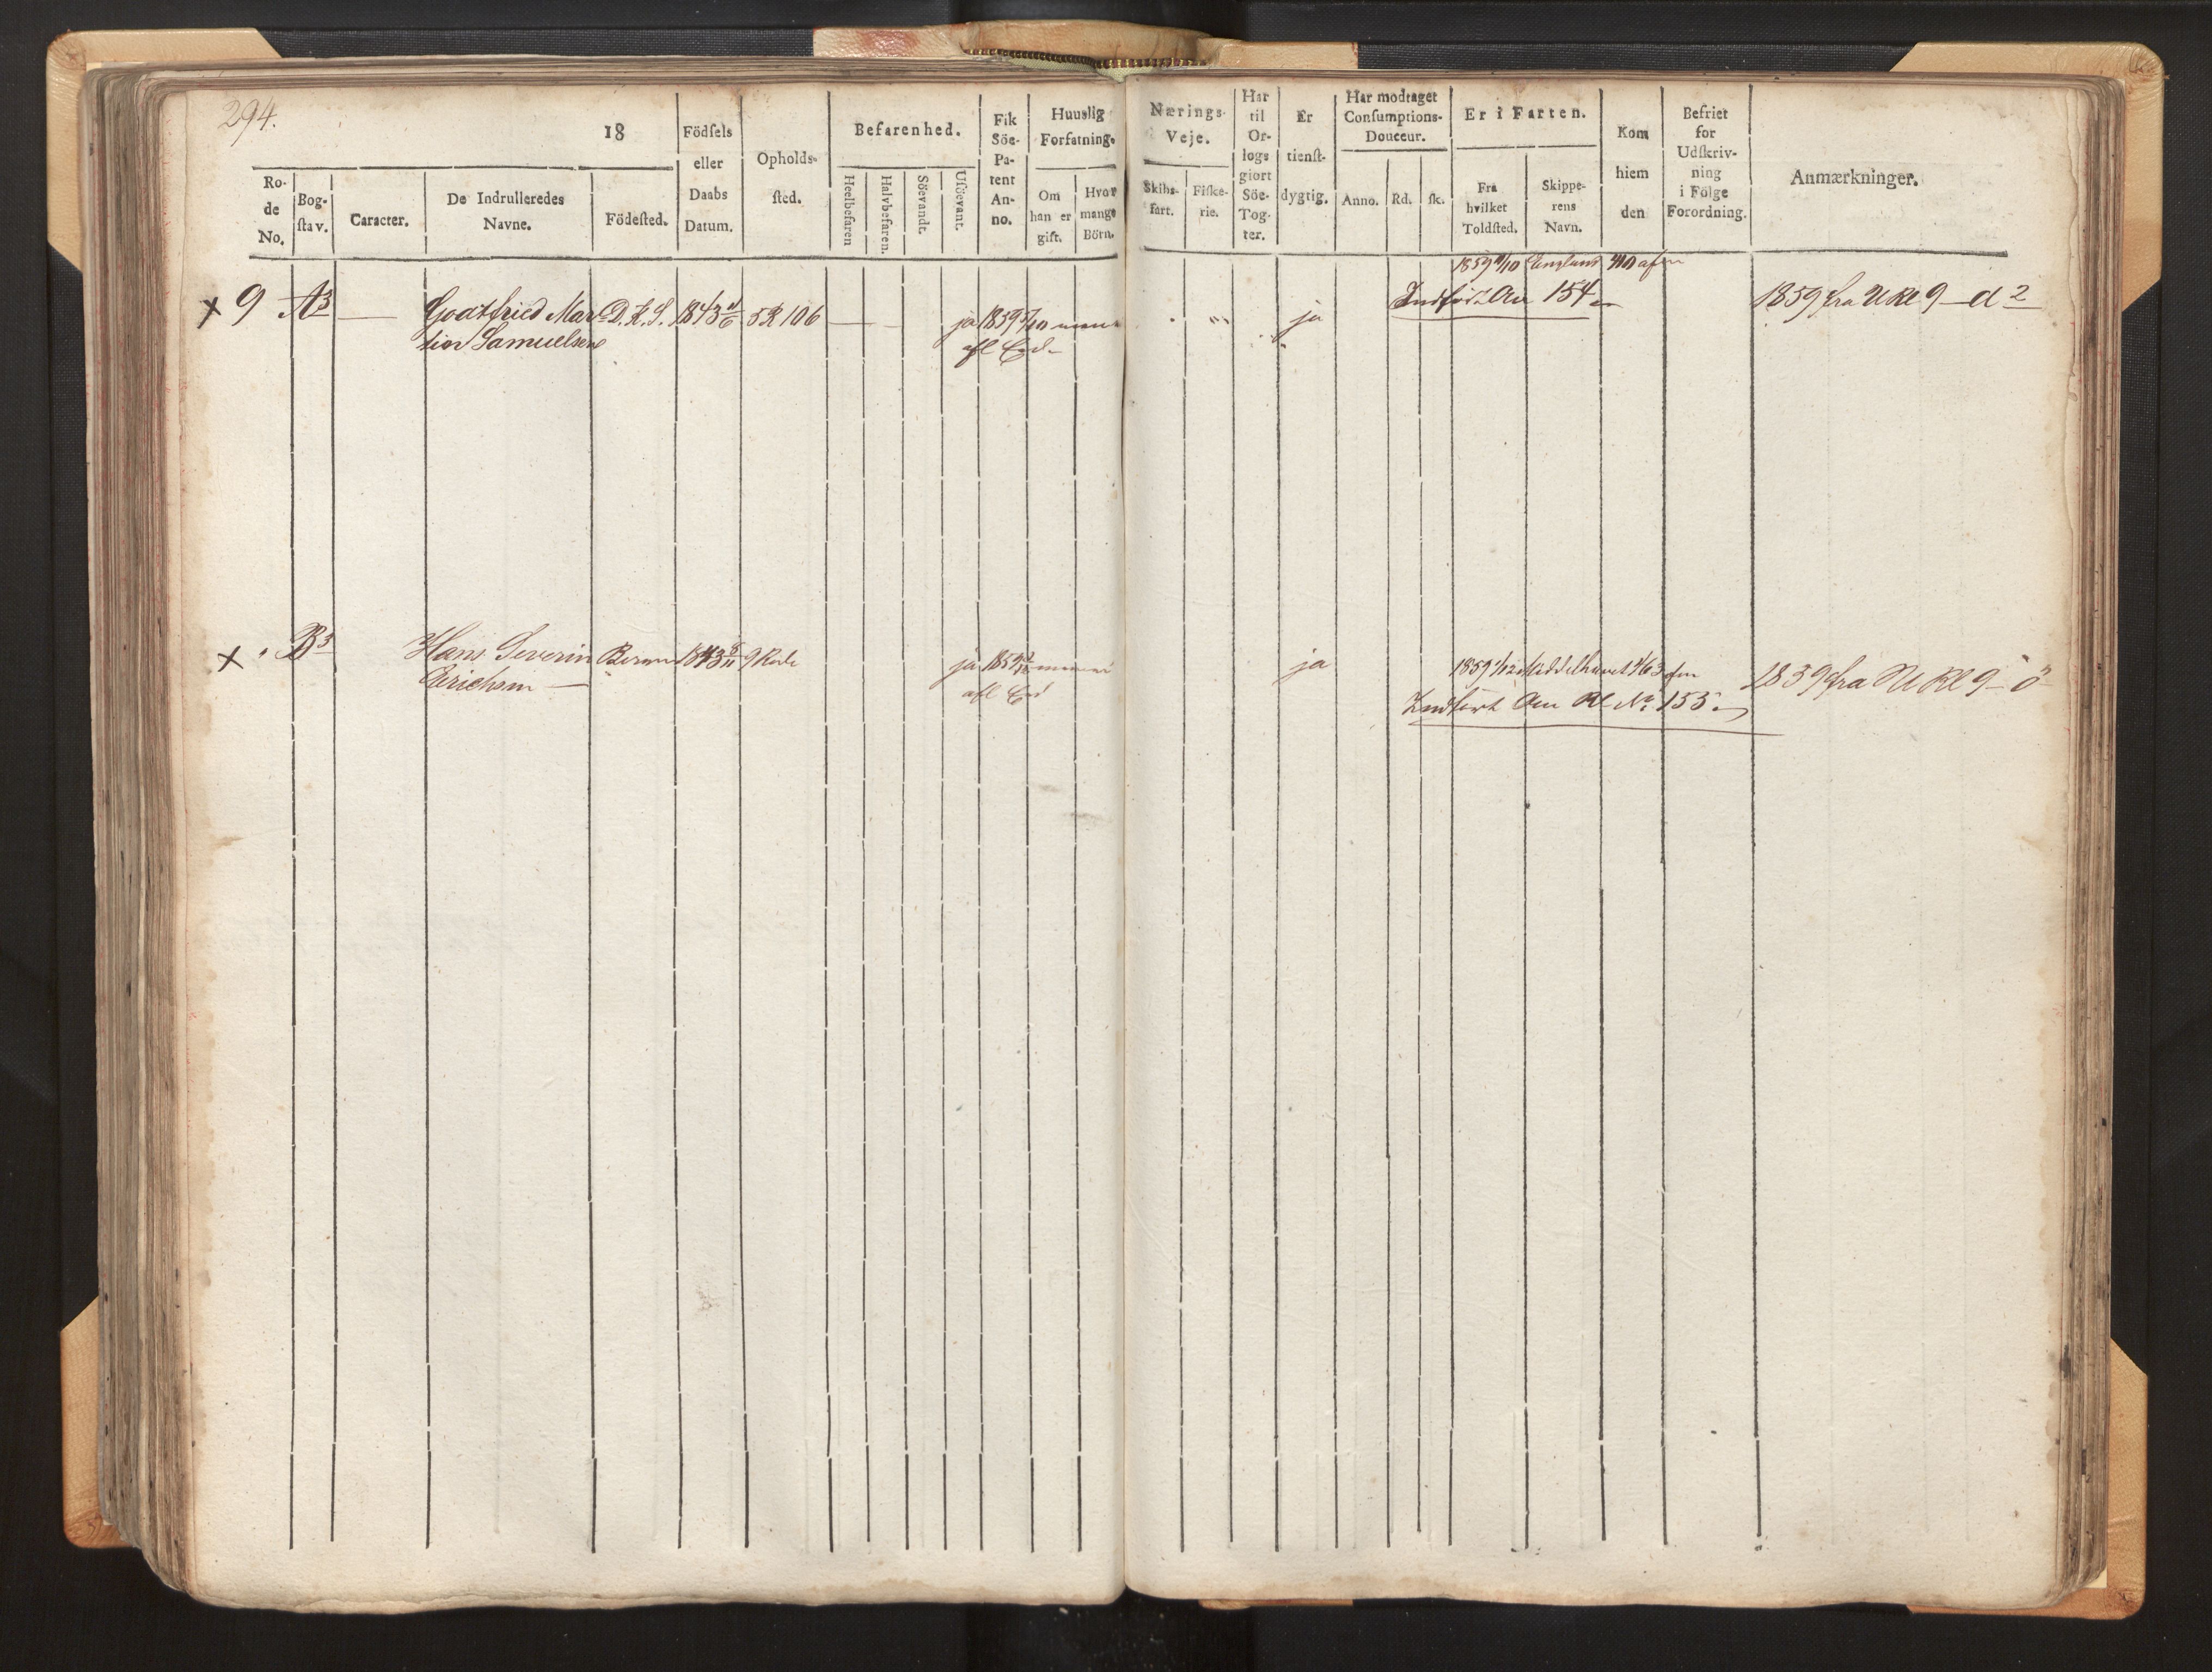 294.
18
Ro-
de
No.
Bog-
stav.
Caracter.
De Indrulleredes
Navne.
Födested.
Födsels
eller
Daabs
Datum.
Opholds-
sted.
Befarenhed.
Heelbefaren
Halvbefaren.
Söevandt.
Usöevant.
Fik
Söe-
Pa-
tent
An-
no.
Huuslig
Forfatning.
Om
han er
gift.
Hvor
mange
Börn.
Nærings-
Veje.
Skibs-
fart.
Fiske-
rie.
Har
til
Or-
logs
giort
Söe-
Tog-
ter.
Er
tienst-
dygtig.
Har modtaget
Consumptions-
Douceur.
Anno.
Rd.
sk.
Er i Farten.
Fra
hvilket
Toldsted.
Skippe-
rens
Navn.
Kom
hiem
den
Befriet
for
Udskriv-
ning
i Fölge
Forordning.
Anmærkninger.
x 9 A3 — Godtfried Mar- D. K. S. 1843 4/6 5 R 106 — — ja 1859
tin Samuelsen
afl Ed
ja
1859 England
Indfört 154
1859 fra U Rl 9 — d 2
x B3 Hans Severin 1843 9 Rode ja 1859
Erichsen —
afl Ed
ja
1859 Middelhavet
Indfört Rl No 153
1859 fra U Rl 9 — ö